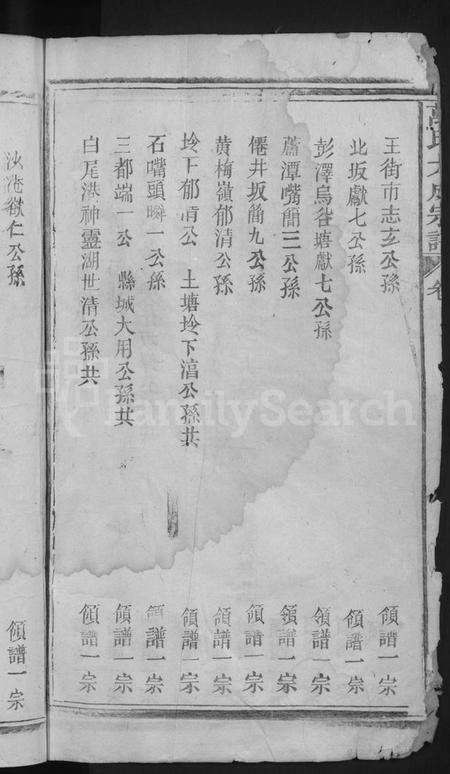 萬氏大成宗譜 卷
王街市志玄公孫 領譜一宗
北坂獻七公孫 領譜一宗
彭澤烏龍塘獻七公孫 領譜一宗
蘆潭嘴簡三公孫 領譜一宗
僊井坂簡九公孫 領譜一宗
黃梅嶺郁清公孫 領譜一宗
坽下郁清公 土塘坽下涫公孫共 領譜一宗
石嘴頭瞬一公孫 領譜一宗
三都端一公 縣城大用公孫共 領譜一宗
白尾港神靈湖世清公孫共 領譜一宗
公孫 領譜一宗
FamilySearch